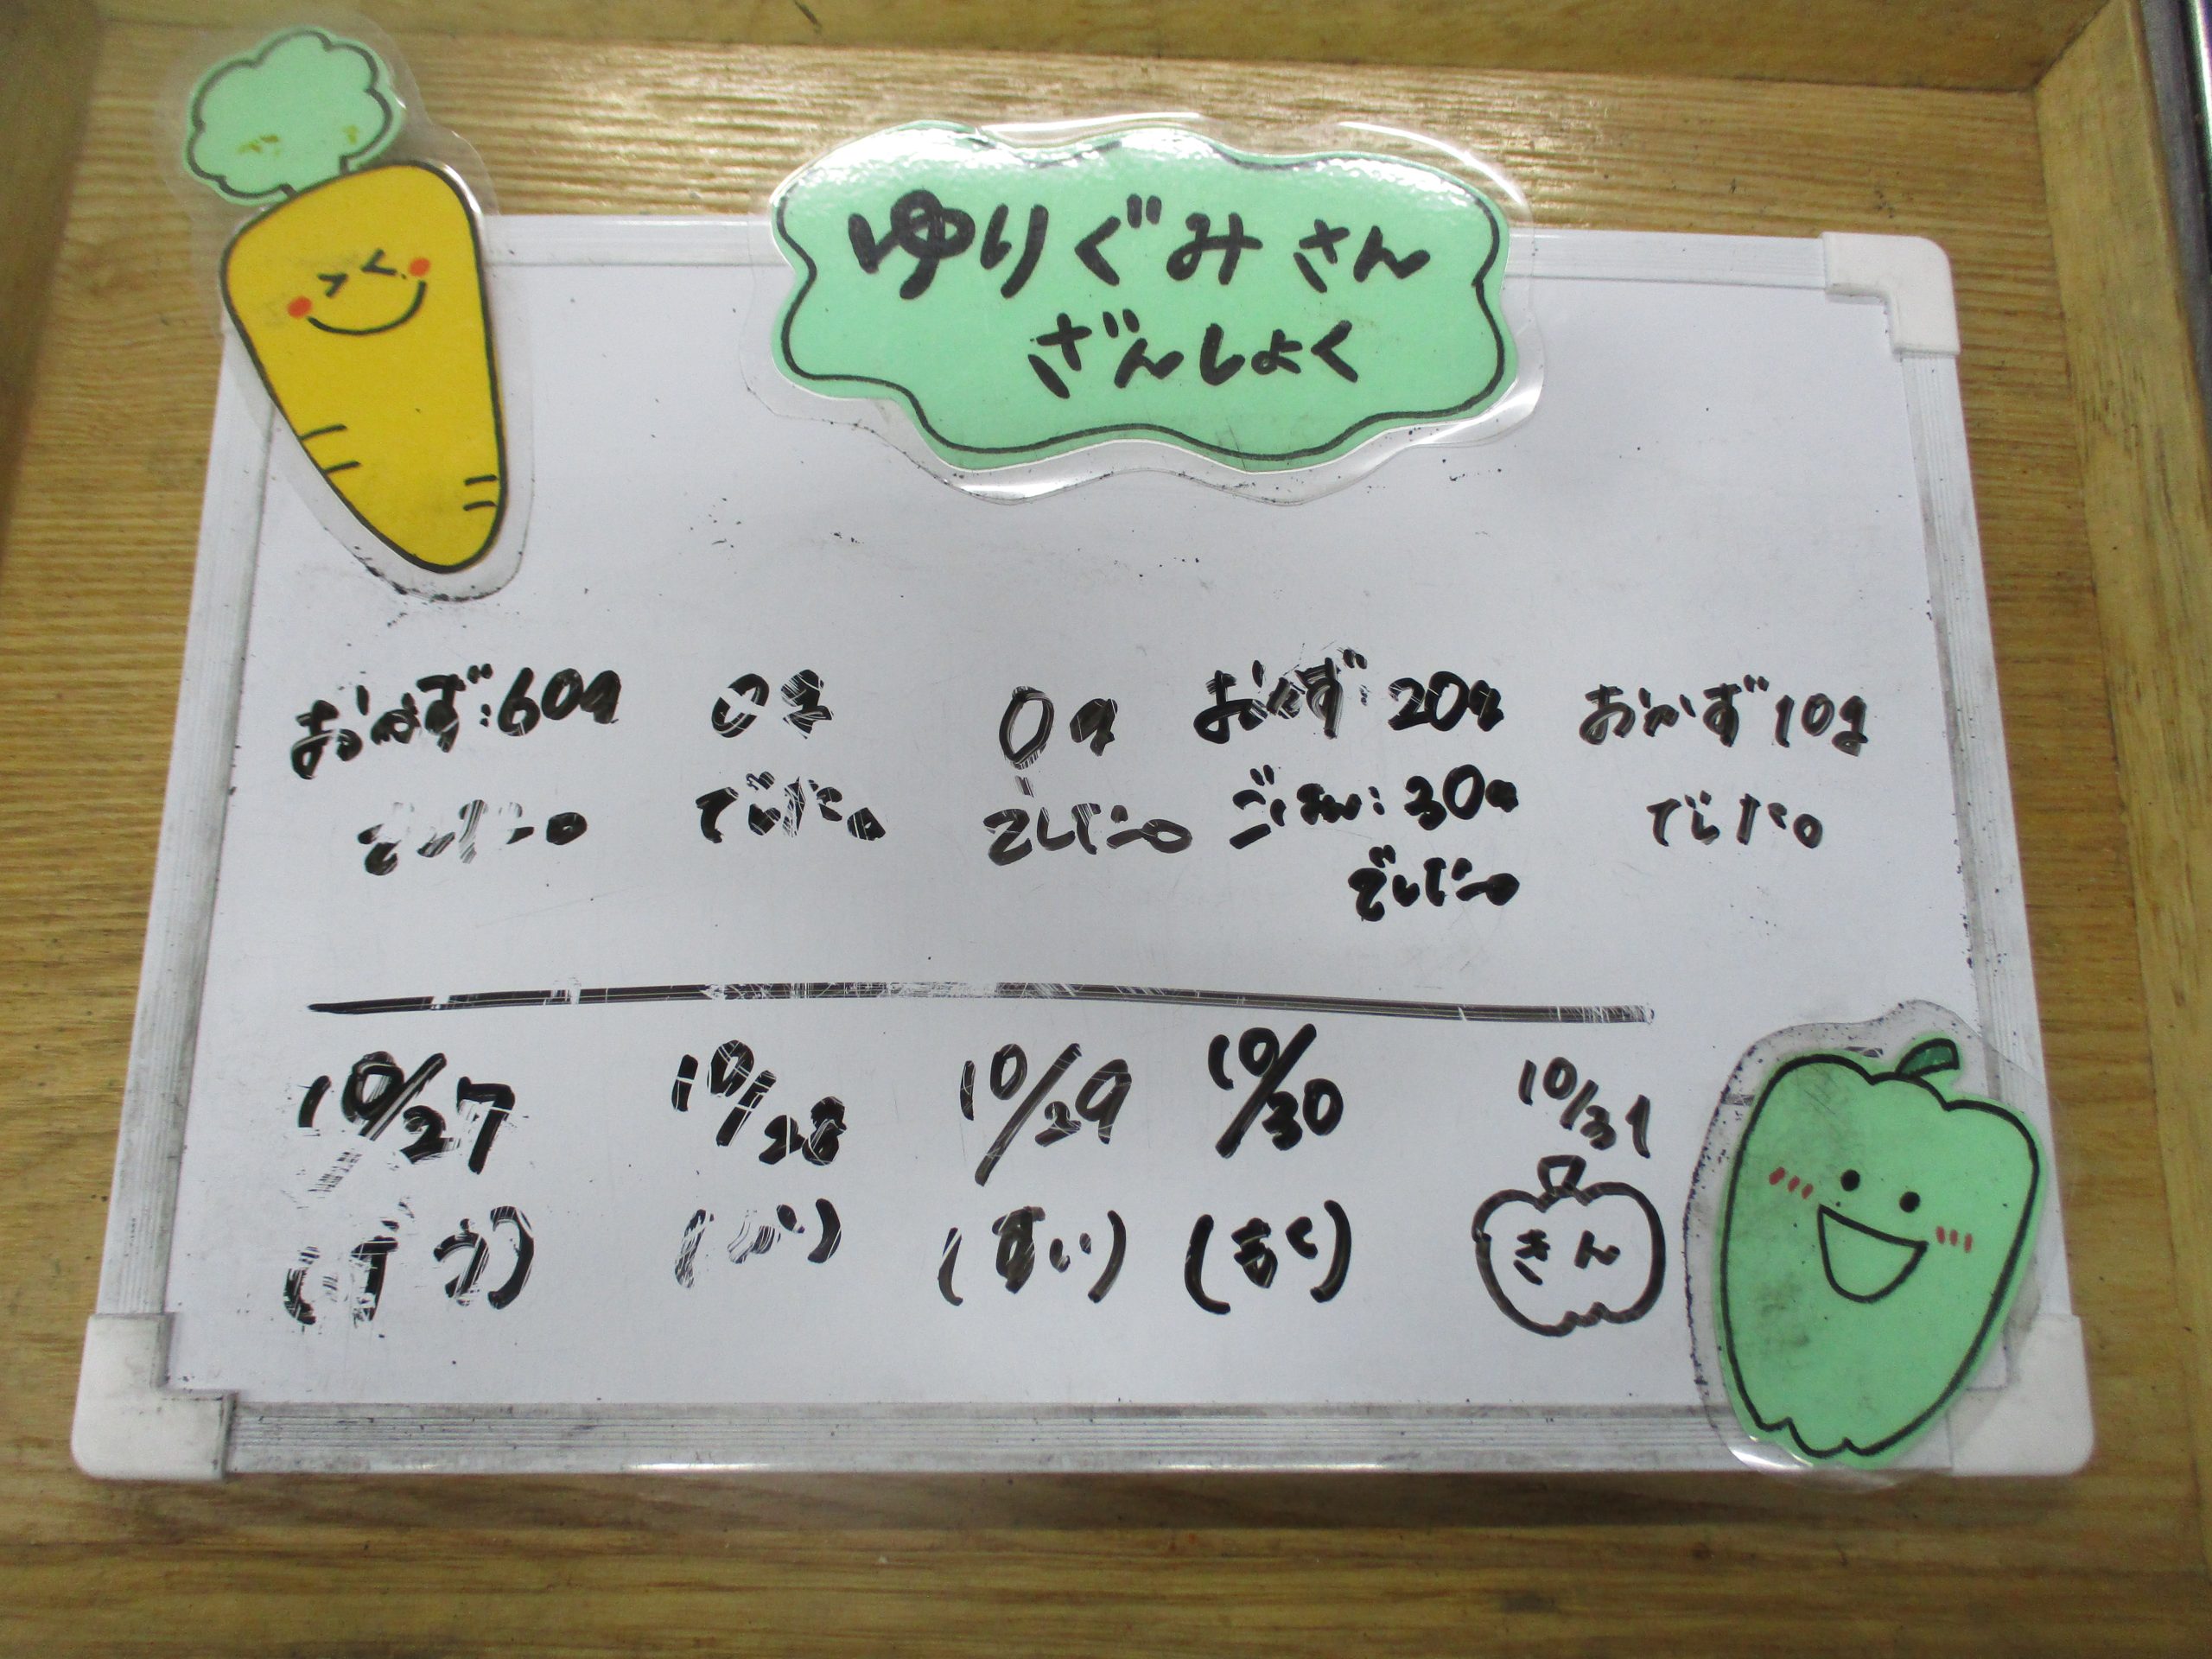 ゆりぐみさん
ざんしょく
おかず:60g
でした。
0g
でした。
0g
でした。
おかず:20g
ごはん:30g
でした。
おかず10g
でした。
10/27
(げつ)
10/28
(か)
10/29
(すい)
10/30
(もく)
10/31
きん